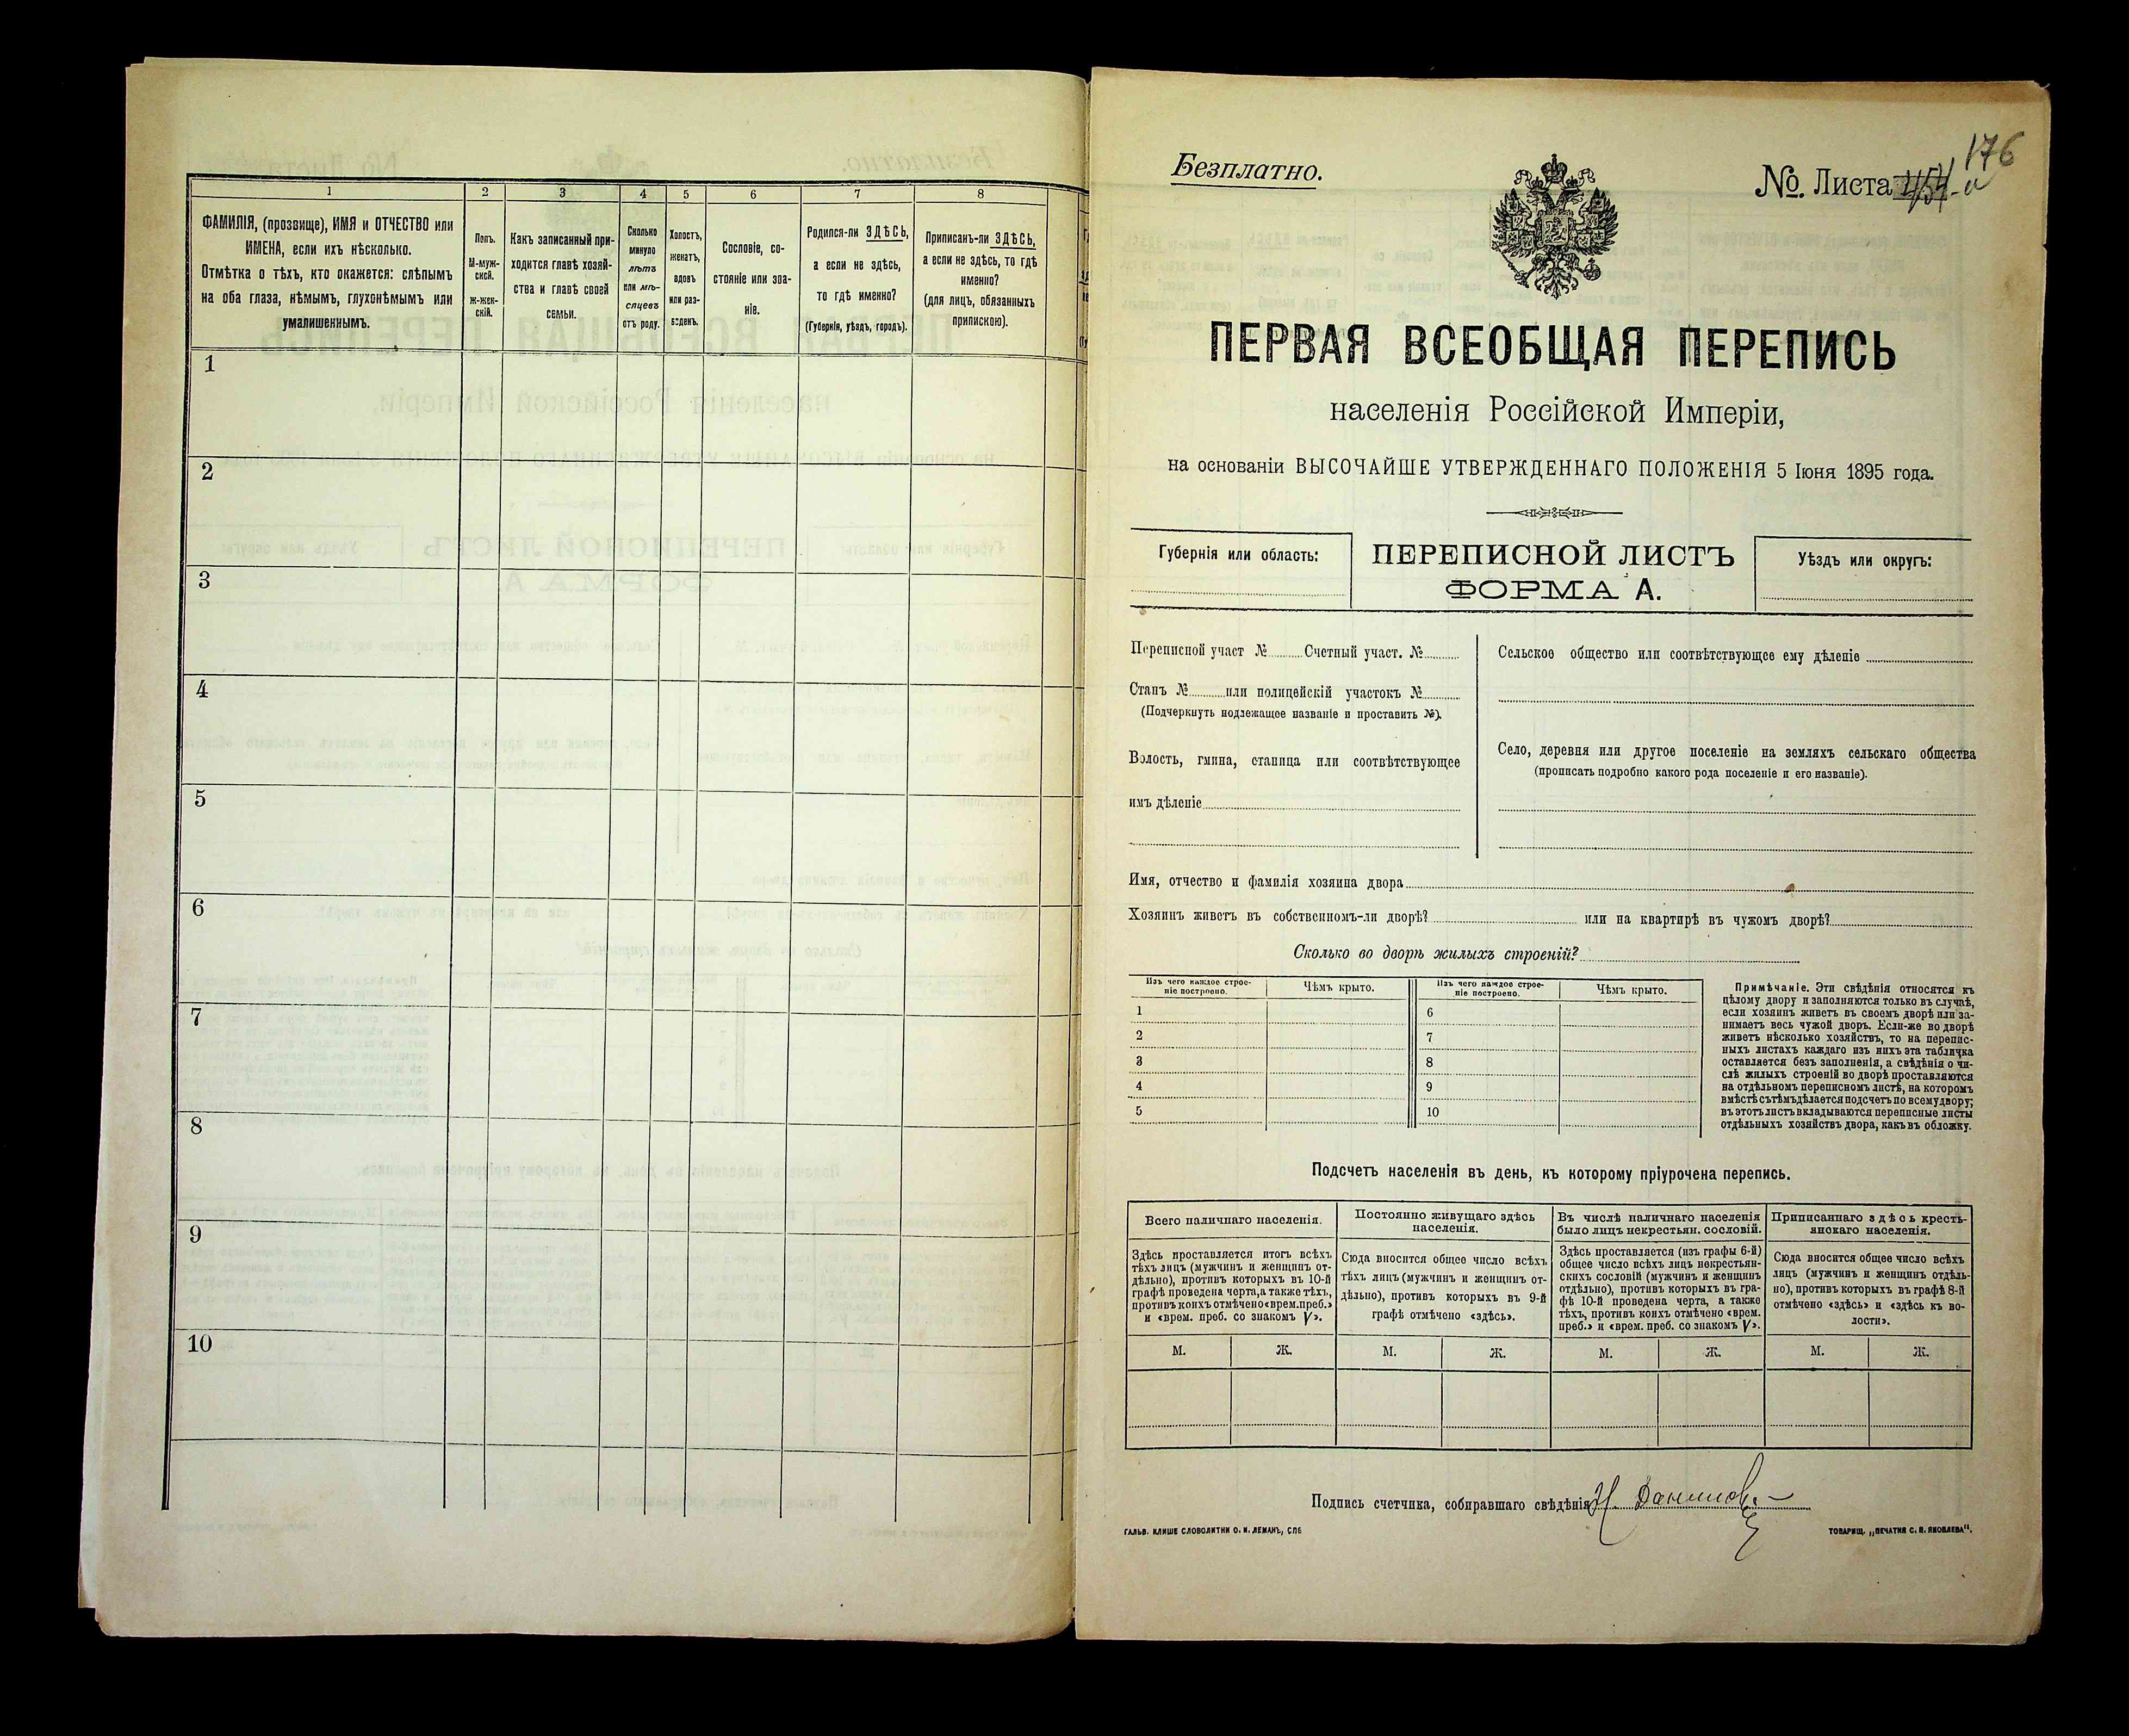 1 2 3 4 5 6 7 8
ФАМИЛІЯ, (прозвище), ИМЯ и ОТЧЕСТВО или
ИМЕНА, если ихъ нѣсколько.
Отмѣтка о тѣхъ, кто окажется: слѣпымъ
на оба глаза, нѣмымъ, глухонѣмымъ или
умалишеннымъ.
Полъ.
М-муж-
ской.
ж-жен-
скій.
Какъ записанный при-
ходится главѣ хозяй-
ства и главѣ своей
семьи.
Сколько
минуло
лѣтъ
или мѣ-
сяцевъ
отъ роду.
Холостъ,
женатъ,
вдовъ
или раз-
веденъ.
Сословіе, со-
стояніе или зва-
ніе.
Родился-ли ЗДѢСЬ,
а если не здѣсь,
то гдѣ именно?
(Губернія, уѣздъ, городъ).
Приписанъ-ли ЗДѢСЬ,
а если не здѣсь, то гдѣ
именно?
(для лицъ, обязанныхъ
припискою).
1
2
3
4
5
6
7
8
9
10
176
Безплатно.
№. Листа
ПЕРВАЯ ВСЕОБЩАЯ ПЕРЕПИСЬ
населенія Россійской Имперіи,
на основаніи ВЫСОЧАЙШЕ УТВЕРЖДЕННАГО ПОЛОЖЕНІЯ 5 Іюня 1895 года.
Губернія или область:
ПЕРЕПИСНОЙ ЛИСТЪ
ФОРМА А.
Уѣздъ или округъ:
Переписной участ № Счетный участ. №
Станъ № или полицейскій участокъ №
(Подчеркнуть подлежащее названіе и проставить №).
Волость, гмина, станица или соотвѣтствующее
имъ дѣленіе
Сельское общество или соотвѣтствующее ему дѣленіе
Село, деревня или другое поселеніе на земляхъ сельскаго общества
(прописать подробно какого рода поселеніе и его названіе).
Имя, отчество и фамилія хозяина двора
Хозяинъ живетъ въ собственномъ-ли дворѣ? или на квартирѣ въ чужомъ дворѣ?
Сколько во дворѣ жилыхъ строеній?
Изъ чего каждое строе-
ніе построено.
Чѣмъ крыто.
Изъ чего каждое строе-
ніе построено.
Чѣмъ крыто.
1 6
2 7
3 8
4 9
5 10
Примѣчаніе. Эти свѣдѣнія относятся къ
цѣлому двору и заполняются только въ случаѣ,
если хозяинъ живетъ въ своемъ дворѣ или за-
нимаетъ весь чужой дворъ. Если-же во дворѣ
живетъ нѣсколько хозяйствъ, то на перепис-
ныхъ листахъ каждаго изъ нихъ эта табличка
оставляется безъ заполненія, а свѣдѣнія о чи-
слѣ жилыхъ строеній во дворѣ проставляются
на отдѣльномъ переписномъ листѣ, на которомъ
вмѣстѣ съ тѣмъ дѣлается подсчетъ по всему двору;
въ этотъ листъ вкладываются переписные листы
отдѣльныхъ хозяйствъ двора, какъ въ обложку.
Подсчетъ населенія въ день, къ которому пріурочена перепись.
Всего наличнаго населенія.
Здѣсь проставляется итогъ всѣхъ
тѣхъ лицъ (мужчинъ и женщинъ от-
дѣльно), противъ которыхъ въ 10-й
графѣ проведена черта, а также тѣхъ,
противъ коихъ отмѣчено «врем. преб.»
и «врем. преб. со знакомъ V».
Постоянно живущаго здѣсь
населенія.
Сюда вносится общее число всѣхъ
тѣхъ лицъ (мужчинъ и женщинъ от-
дѣльно), противъ которыхъ въ 9-й
графѣ отмѣчено «здѣсь».
Въ числѣ наличнаго населенія
было лицъ некрестьян. сословій.
Здѣсь проставляется (изъ графы 6-й)
общее число всѣхъ лицъ некрестьян-
скихъ сословій (мужчинъ и женщинъ
отдѣльно), противъ которыхъ въ гра-
фѣ 10-й проведена черта, а также
тѣхъ, противъ коихъ отмѣчено «врем.
преб.» и «врем. преб. со знакомъ V».
Приписаннаго здѣсь кресть-
янскаго населенія.
Сюда вносится общее число всѣхъ
лицъ (мужчинъ и женщинъ отдѣль-
но), противъ которыхъ въ графѣ 8-й
отмѣчено «здѣсь» и «здѣсь къ во-
лости».
М. Ж. М. Ж. М. Ж. М. Ж.
Подпись счетчика, собиравшаго свѣдѣнія
ГАЛЬВ. КЛИШЕ СЛОВОЛИТНИ О. И. ЛЕМАНЪ, СПБ
ТОВАРИЩ. „ПЕЧАТНЯ С. П. ЯКОВЛЕВА".